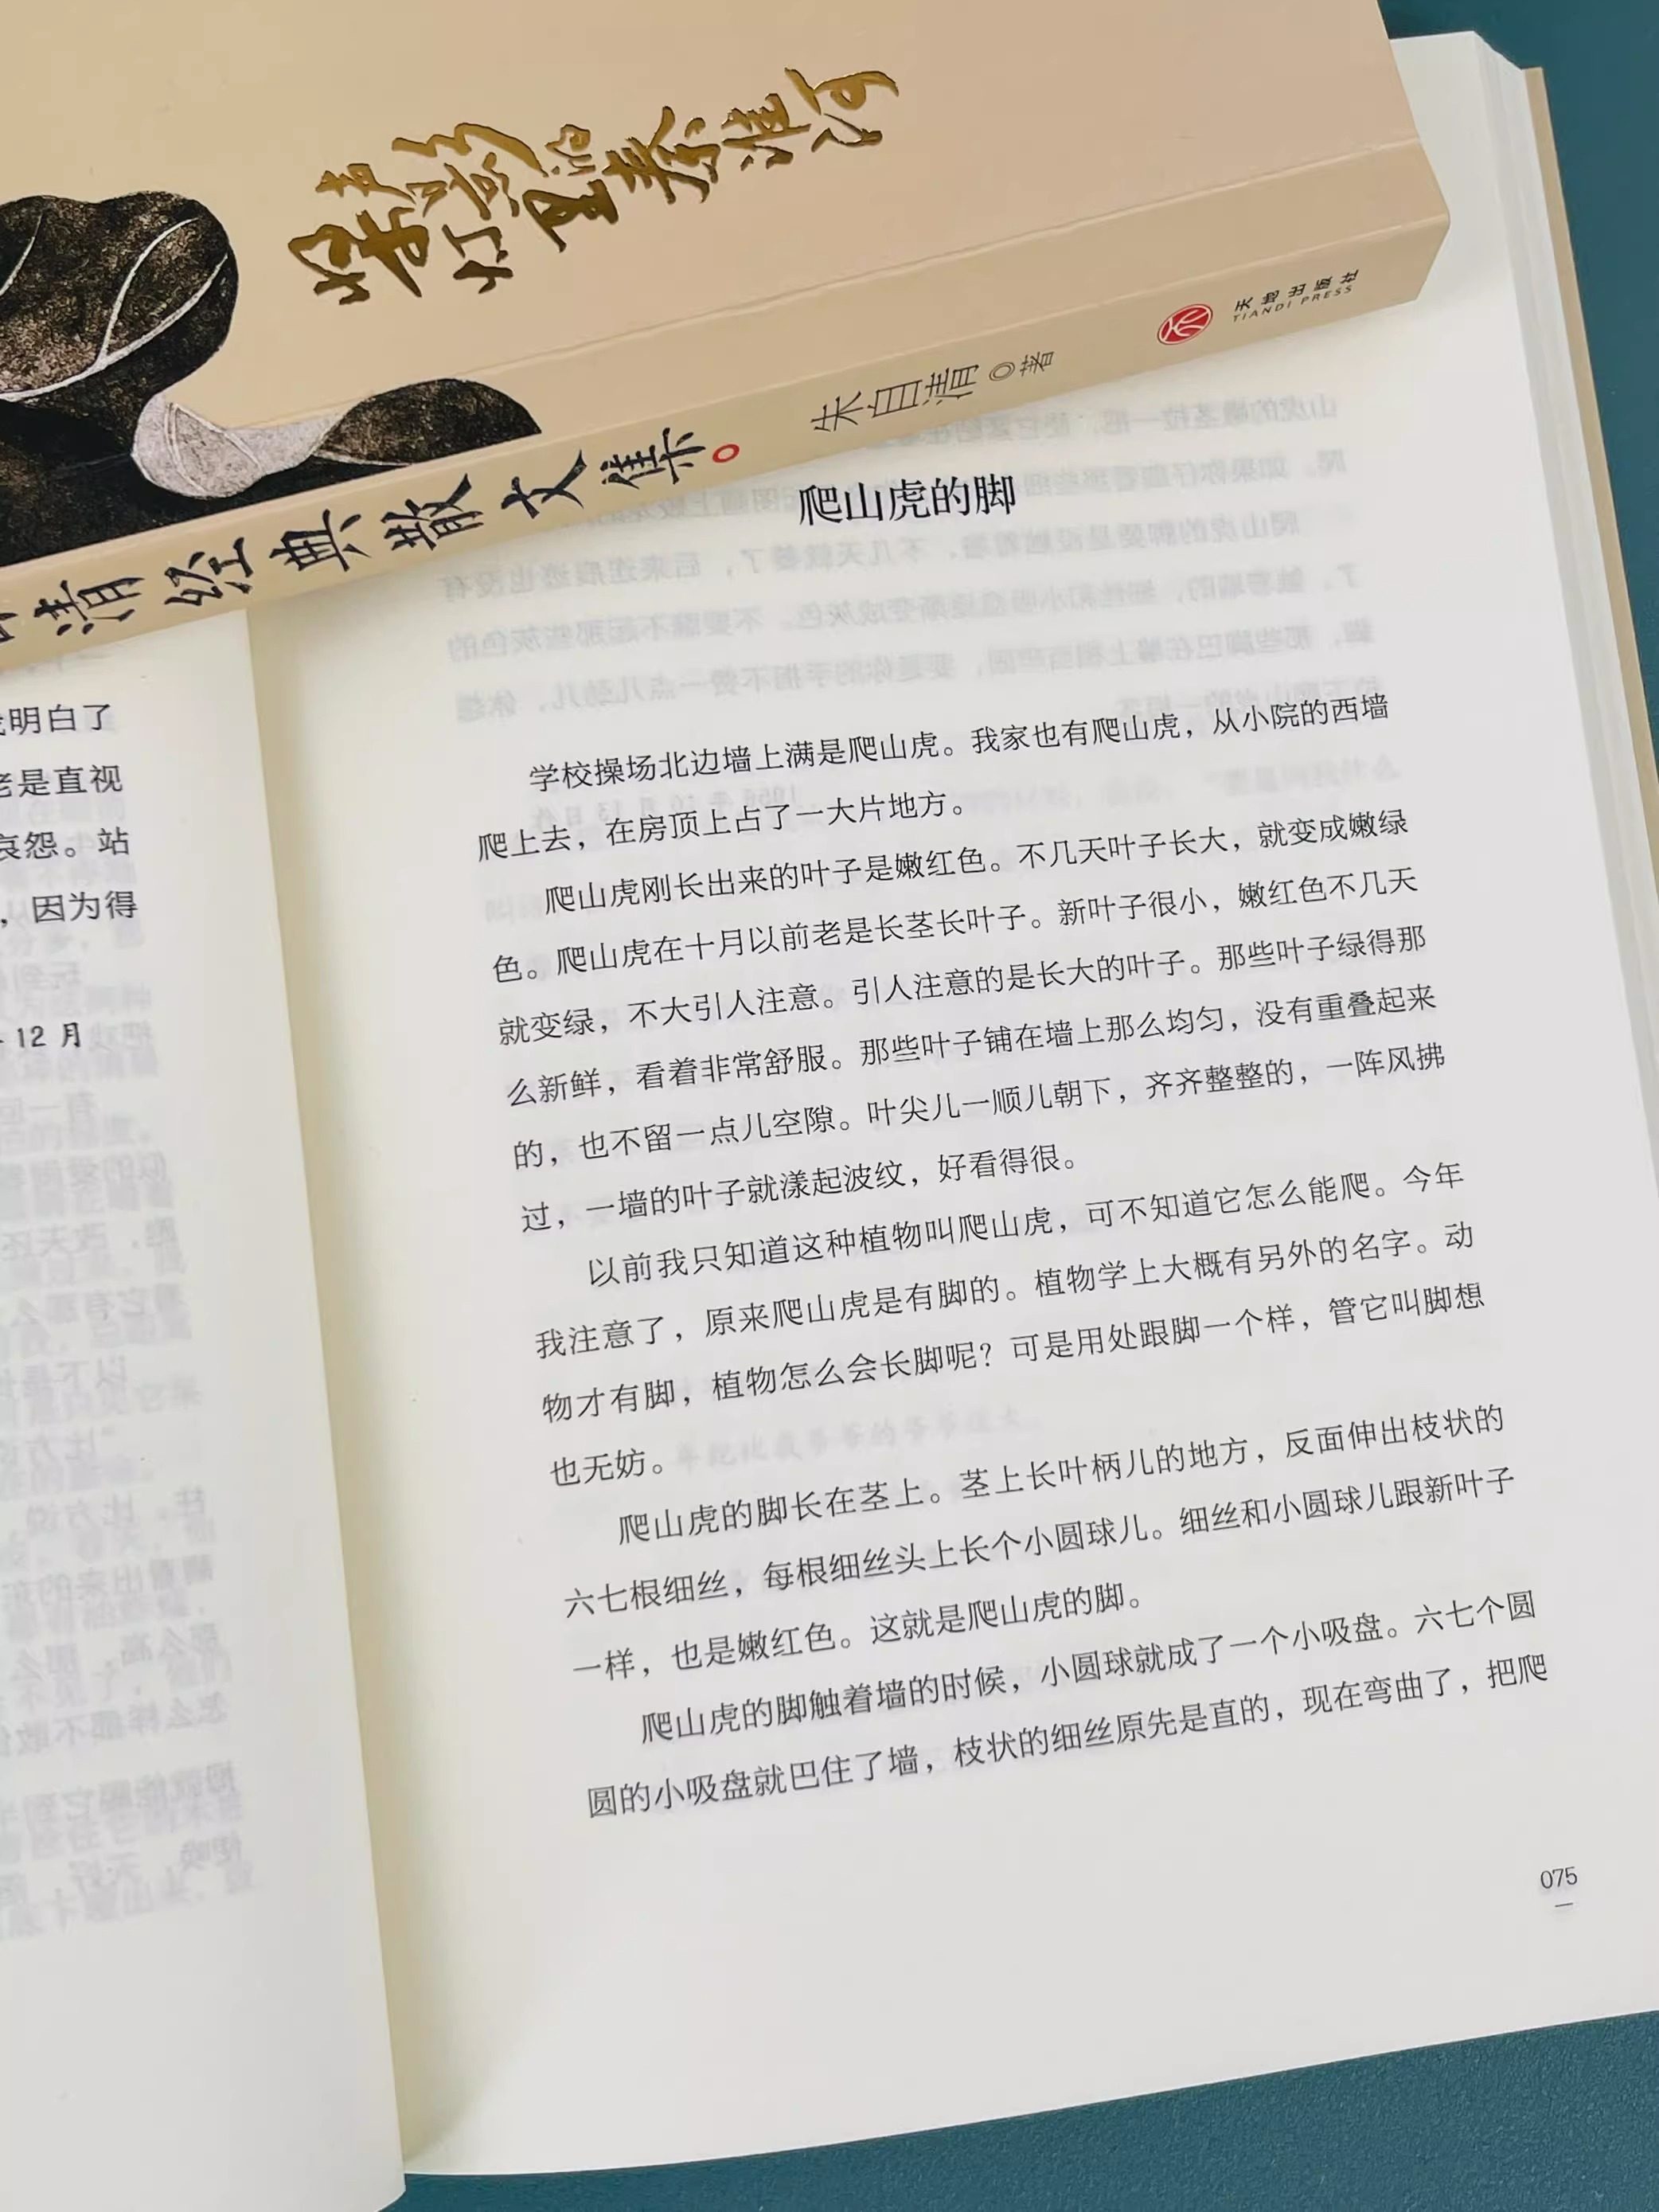 桨声灯影里的秦淮河
清经典散文集
朱自清 ◎ 著
天地出版社
TIANDI PRESS
明白了
老是直视
哀怨。站
，因为得
12 月
爬山虎的脚
学校操场北边墙上满是爬山虎。我家也有爬山虎，从小院的西墙
爬上去，在房顶上占了一大片地方。
爬山虎刚长出来的叶子是嫩红色。不几天叶子长大，就变成嫩绿
色。爬山虎在十月以前老是长茎长叶子。新叶子很小，嫩红色不几天
就变绿，不大引人注意。引人注意的是长大的叶子。那些叶子绿得那
么新鲜，看着非常舒服。那些叶子铺在墙上那么均匀，没有重叠起来
的，也不留一点儿空隙。叶尖儿一顺儿朝下，齐齐整整的，一阵风拂
过，一墙的叶子就漾起波纹，好看得很。
以前我只知道这种植物叫爬山虎，可不知道它怎么能爬。今年
我注意了，原来爬山虎是有脚的。植物学上大概有另外的名字。动
物才有脚，植物怎么会长脚呢？可是用处跟脚一个样，管它叫脚想
也无妨。
爬山虎的脚长在茎上。茎上长叶柄儿的地方，反面伸出枝状的
六七根细丝，每根细丝头上长个小圆球儿。细丝和小圆球儿跟新叶子
一样，也是嫩红色。这就是爬山虎的脚。
爬山虎的脚触着墙的时候，小圆球就成了一个小吸盘。六七个圆
圆的小吸盘就巴住了墙，枝状的细丝原先是直的，现在弯曲了，把爬
075